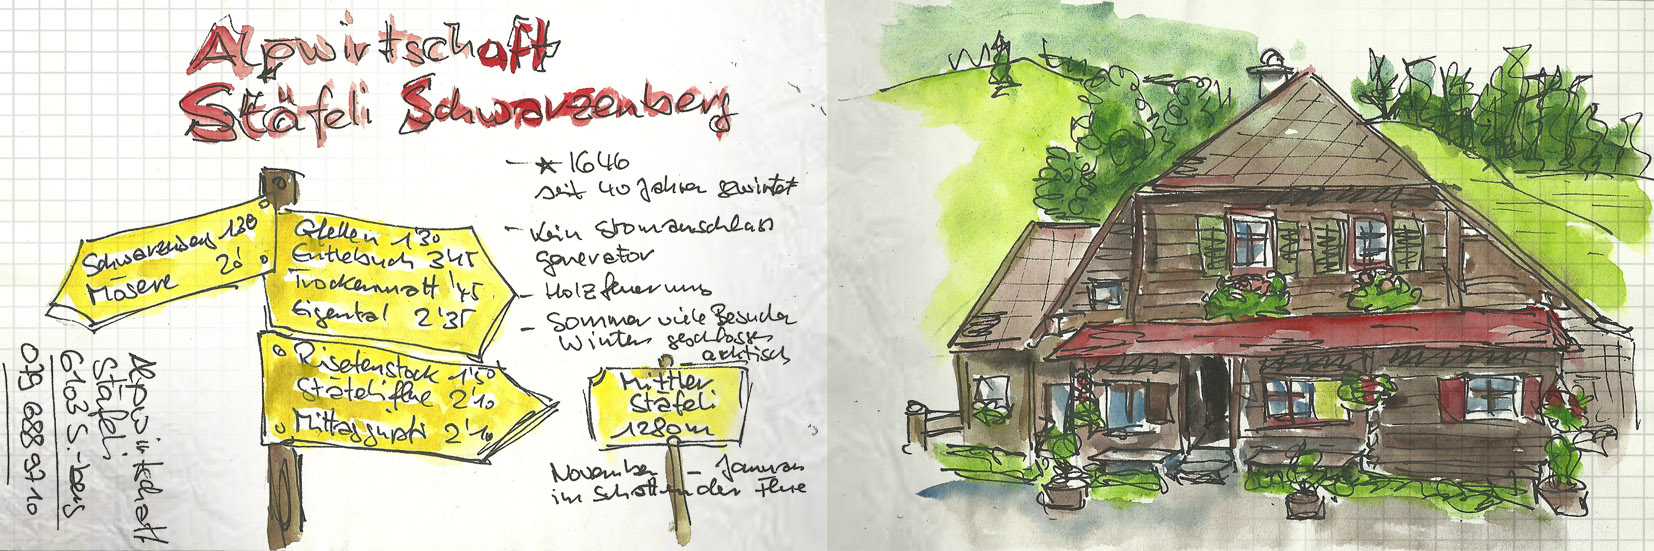 Alpwirtschaft
Stäfeli Schwarzenberg
– * 1646
seit 40 Jahren gewirtet
– Kein Stromanschluss
generator
– Holzfeuerung
– Sommer viele Besucher
Winter geschlossen
arktisch
Schwarzenberg 1'30
Mösere 20'
Gfellen 1'30
Entlebuch 3'45
Trockenmatt '45
Eigental 2'35
Risetenstock 1'50
Stäfeliflue 2'10
Mittaggüpfi 2'10
Mittler
Stäfeli
1280m
November – Januar
im Schatten der Flue
Alpwirtschaft
Stäfeli
6103 S.-berg
079 688 97 10